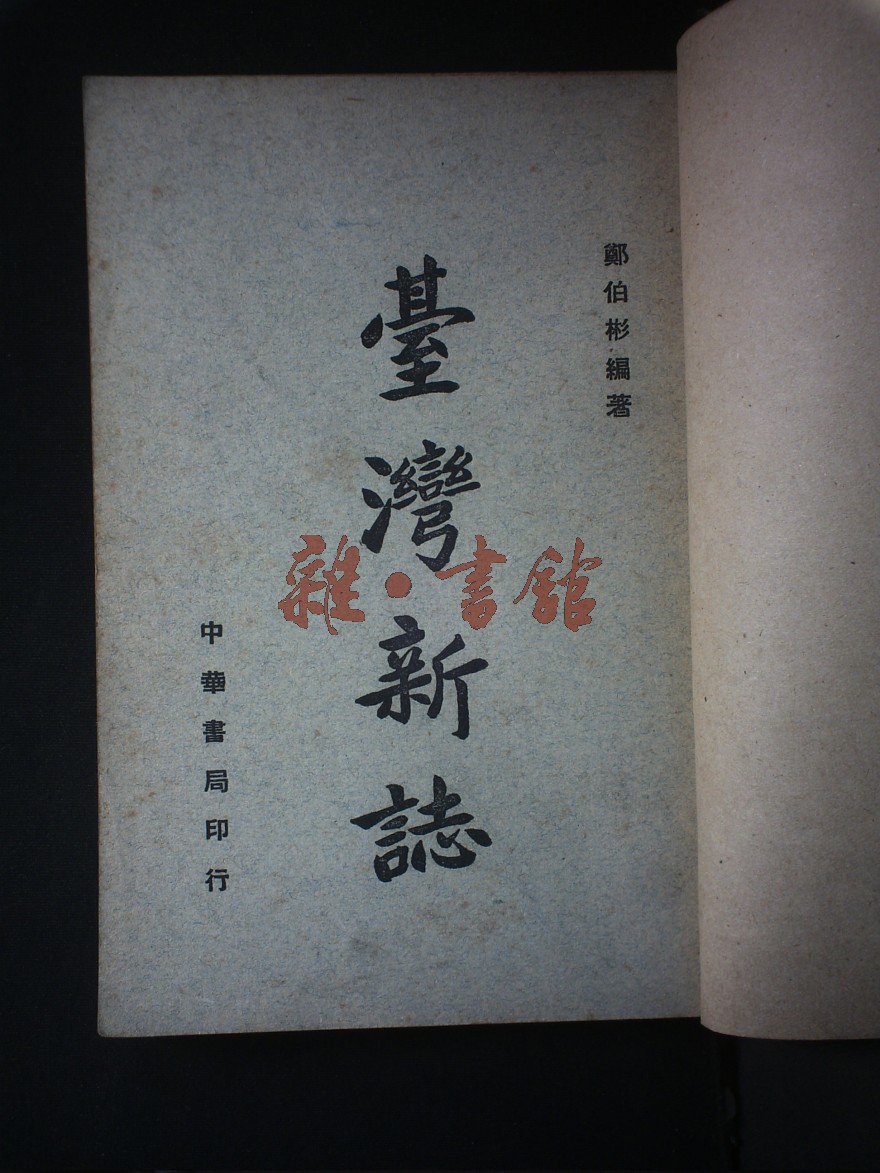 鄭伯彬編著
臺灣新誌
中華書局印行
雜·書館